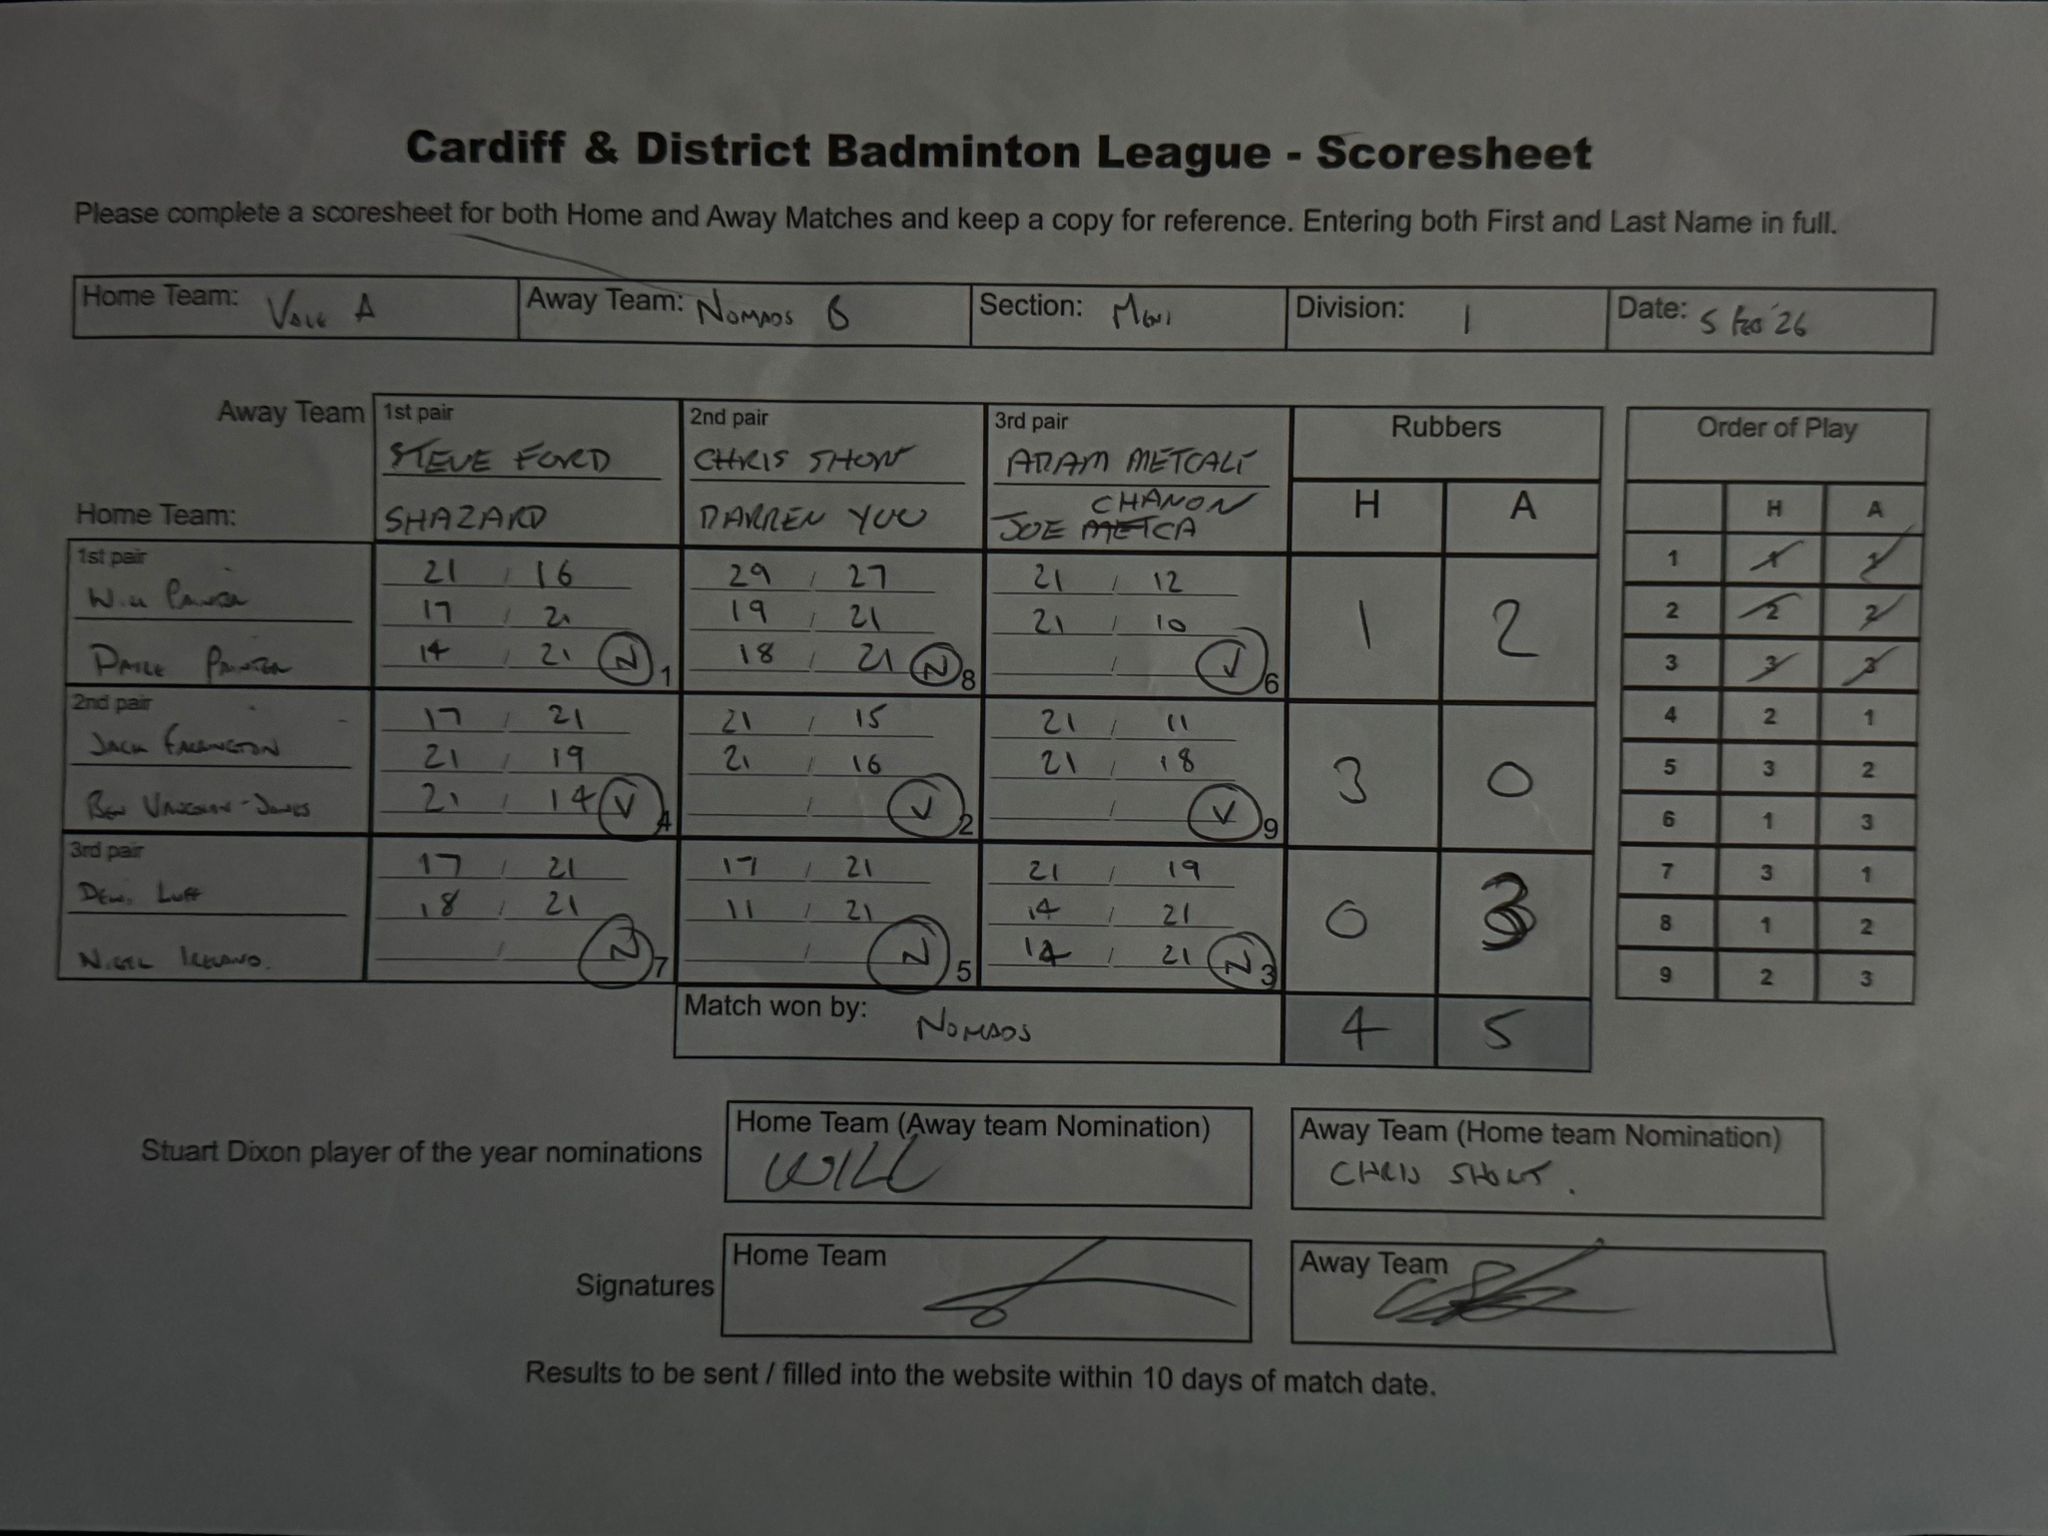 Cardiff & District Badminton League - Scoresheet
Please complete a scoresheet for both Home and Away Matches and keep a copy for reference. Entering both First and Last Name in full.
Home Team: Vale A Away Team: Nomads B Section: Division: 1 Date: 5 Feb 26
Away Team 1st pair 2nd pair 3rd pair Rubbers Order of Play
STEVE FORD CHRIS SHORT ADAM METCALF
CHANON
Home Team: SHAZARD DARREN YUU JOE METCA H A H A
1st pair 21 / 16 29 / 27 21 / 12 1 1 1
Will Painter 17 / 21 19 / 21 21 / 10 1 2 2 2 2
Painter 14 / 21 N 1 18 / 21 N 8 / V 6 3 3 3
2nd pair 17 / 21 21 / 15 21 / 11 4 2 1
Jack 21 / 19 21 / 16 21 / 18 3 0 5 3 2
Ben Vaughan-Jones 21 / 14 V 4 / V 2 / V 9 6 1 3
3rd pair 17 / 21 17 / 21 21 / 19 7 3 1
Luff 18 / 21 11 / 21 14 / 21 0 3 8 1 2
Nigel / N 7 / N 5 14 / 21 N 3 9 2 3
Match won by: Nomads 4 5
Stuart Dixon player of the year nominations
Home Team (Away team Nomination)
WILL
Away Team (Home team Nomination)
CHRIS SHORT.
Signatures
Home Team
Away Team
Results to be sent / filled into the website within 10 days of match date.